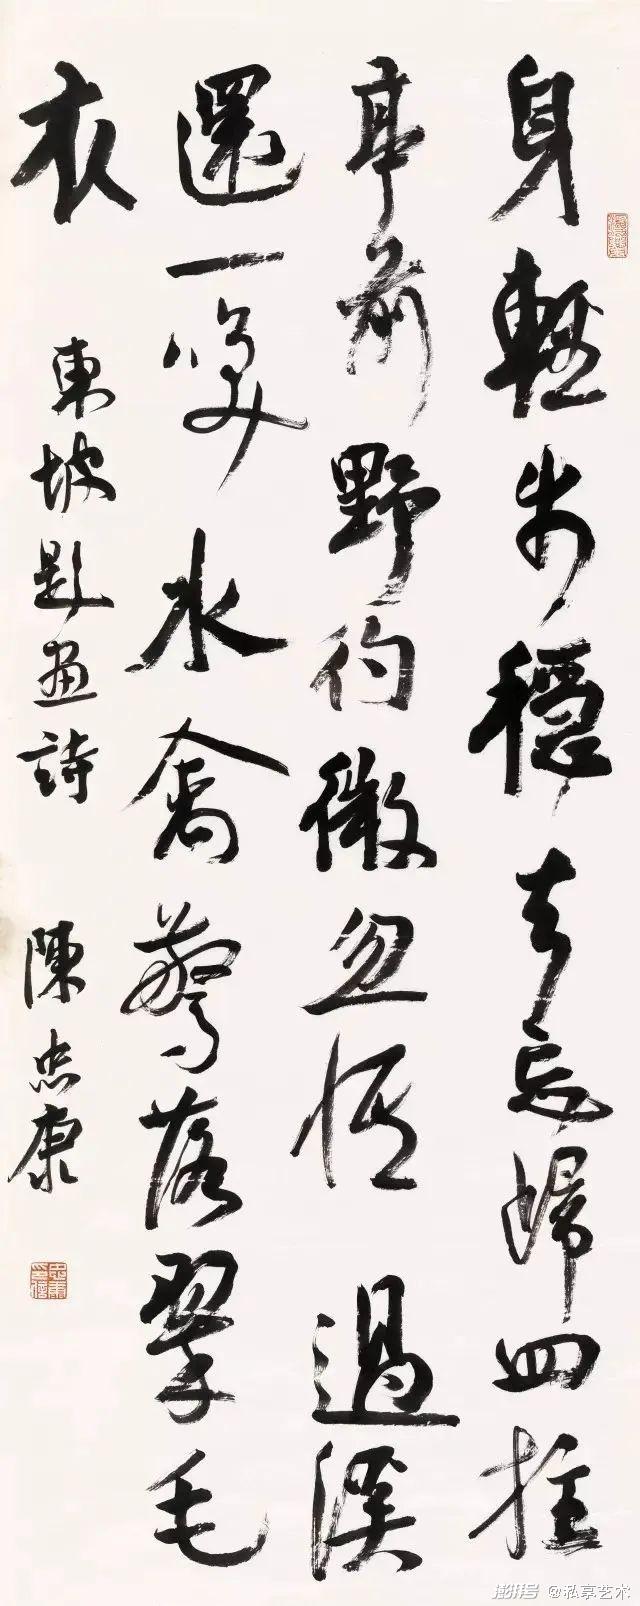 身輕步穩去忘歸四柱
亭前野彴微忽悟過溪
還一咲水禽驚落翠毛
衣
東坡題畫詩
陳忠康
澎湃号 @私享艺术